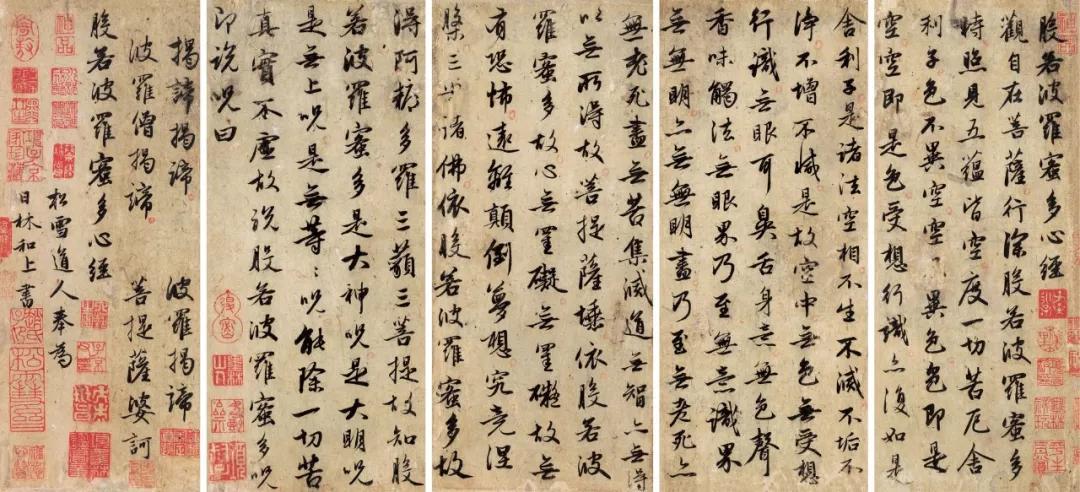 般若波羅蜜多心經
觀自在菩薩行深般若波羅蜜多
時照見五蘊皆空度一切苦厄舍
利子色不異空空不異色色即是
空空即是色受想行識亦復如是
舍利子是諸法空相不生不滅不垢不
淨不增不減是故空中無色無受想
行識無眼耳鼻舌身意無色聲
香味觸法無眼界乃至無意識界
無無明亦無無明盡乃至無老死亦
無老死盡無苦集滅道無智亦無得
以無所得故菩提薩埵依般若波
羅蜜多故心無罣礙無罣礙故無
有恐怖遠離顛倒夢想究竟涅
槃三世諸佛依般若波羅蜜多故
得阿耨多羅三藐三菩提故知般
若波羅蜜多是大神呪是大明呪
是無上呪是無等々呪能除一切苦
真實不虛故說般若波羅蜜多呪
即說呪曰
揭諦揭諦 波羅揭諦
波羅僧揭諦 菩提薩婆訶
般若波羅蜜多心經
松雪道人奉為
日林和上書